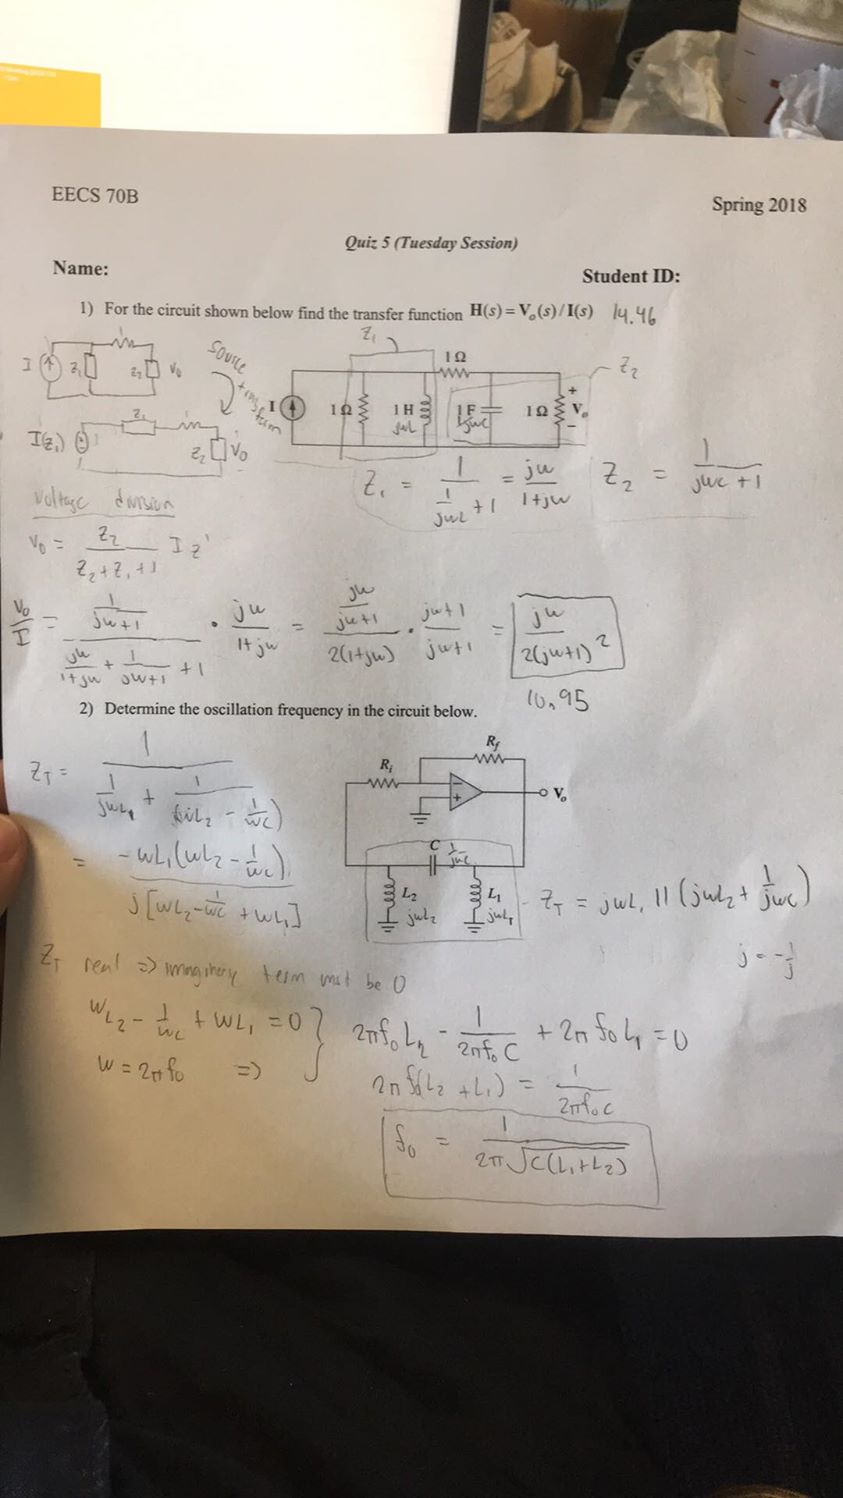 EECS 70B
Spring 2018
Quiz 5 (Tuesday Session)
Name:
Student ID:
1) For the circuit shown below find the transfer function H(s) = Vₒ(s) / I(s) 14.46
Z₁
I Z₁ Z₂ V₀
Source transform
1 Ω
Z₂
I 1 Ω 1 H jωL 1 F 1/jωC 1 Ω + Vₒ −
I(Z₁) Z₁ Z₂ V₀
Z₁ = 1/(1/jωL + 1) = jω/(1+jω) Z₂ = 1/(jωC + 1)
Voltage division
V₀ = Z₂/(Z₂+Z₁+1) I Z'
V₀/I = (1/(jω+1))/(jω/(1+jω) + 1/(jω+1) + 1) · jω/(1+jω) = (jω/(jω+1))/(2(1+jω)) · (jω+1)/(jω+1) = jω/(2(jω+1)²)
10.95
2) Determine the oscillation frequency in the circuit below.
Z_T = 1/(1/jωL₁ + 1/(j(ωL₂ − 1/ωC)))
R_f
R_i
− + Vₒ
= −ωL₁(ωL₂ − 1/ωC)/(j[ωL₂ − 1/ωC + ωL₁])
C 1/jωC
L₂ jωL₂ L₁ jωL₁
Z_T = jωL₁ || (jωL₂ + 1/jωC)
j = −1/j
Z_T real => imaginary term must be 0
ωL₂ − 1/ωC + ωL₁ = 0
ω = 2πf₀ =>
2πf₀L₂ − 1/(2πf₀C) + 2πf₀L₁ = 0
2πf₀(L₂ + L₁) = 1/(2πf₀C)
f₀ = 1/(2π√(C(L₁+L₂)))